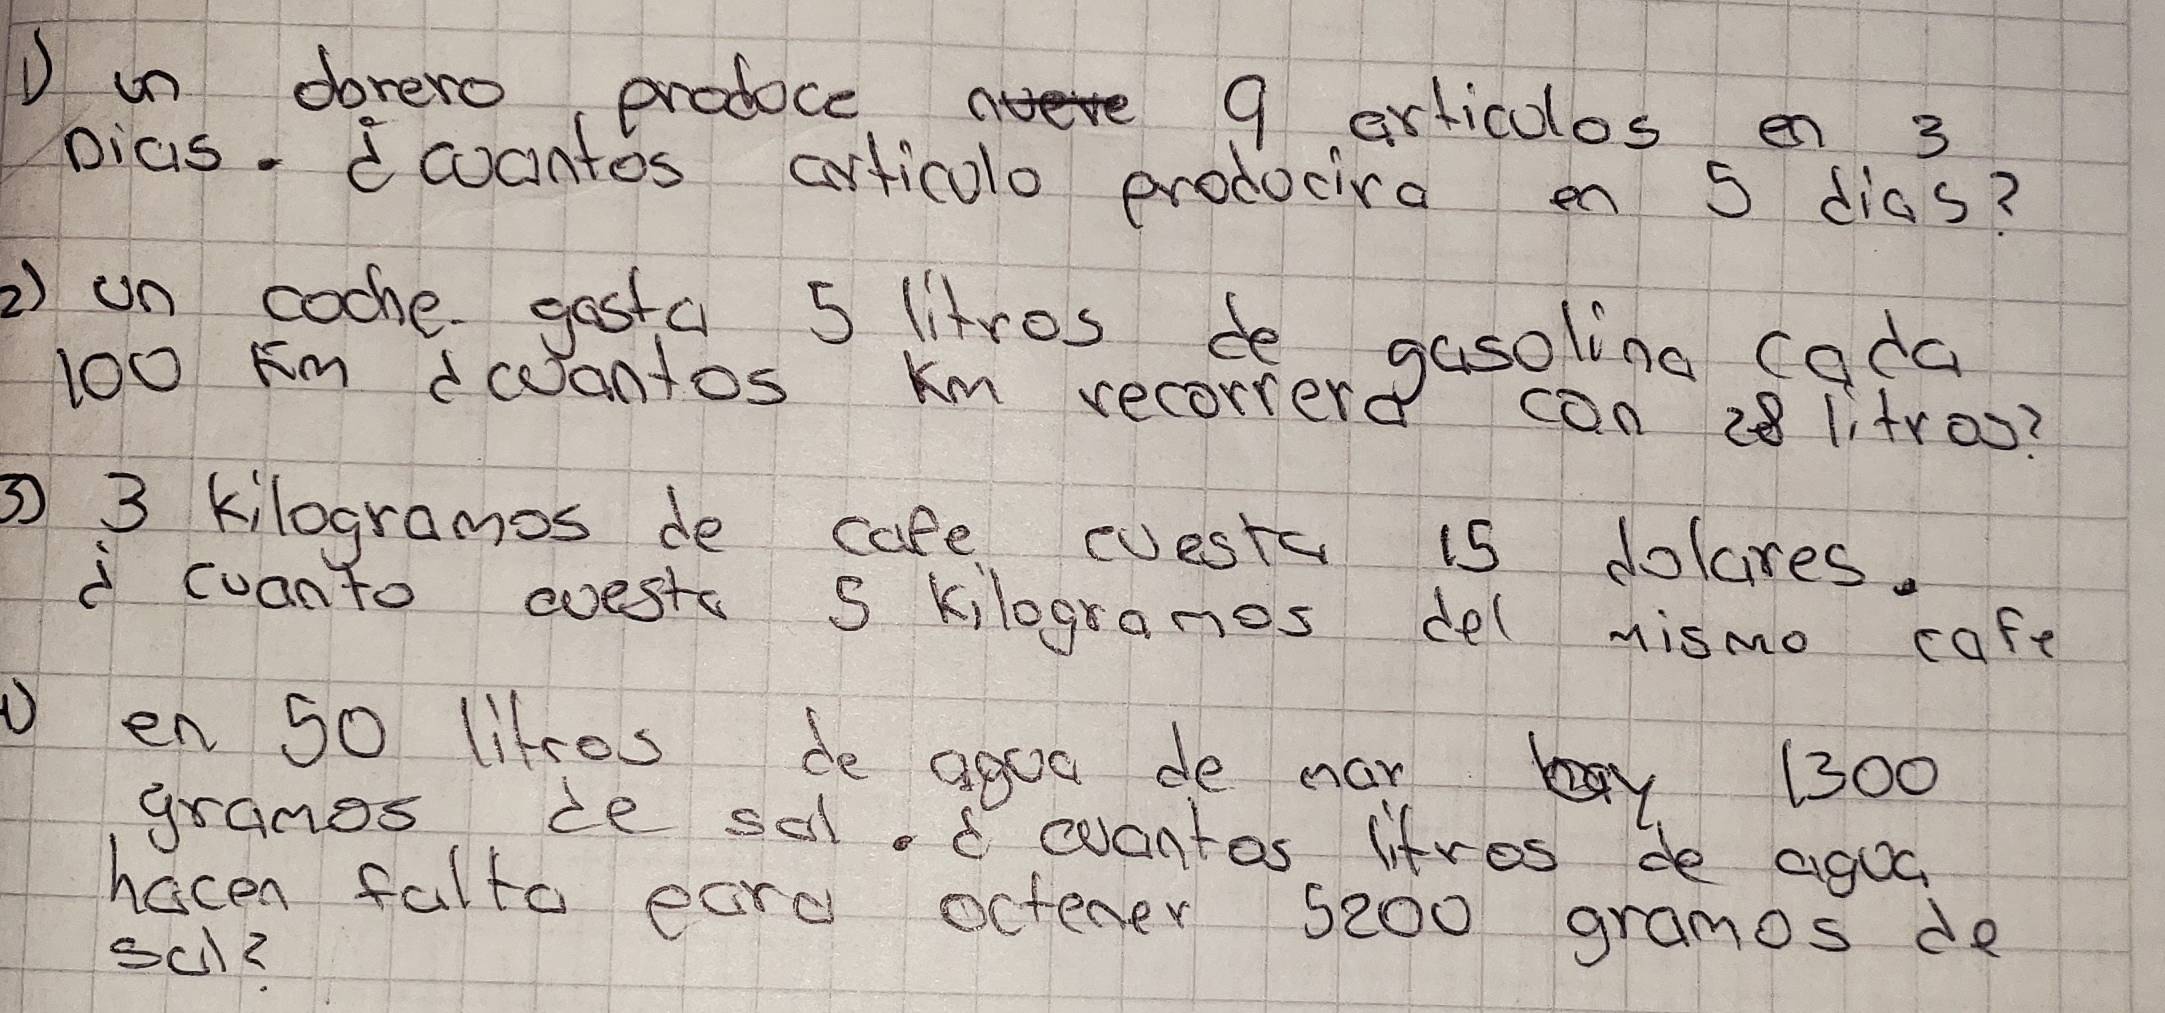 1) un obrero produce nueve 9 articulos en 3
Dias. ¿cuantos articulo producira en 5 dias?
2) un coche gasta 5 litros de gasolina cada
100 Km ¿cuantos Km recorrera con 28 litros?
3) 3 Kilogramos de cafe cuesta 15 dolares.
¿ cuanto cuesta 5 Kilogramos del mismo cafe
4) en 50 litros de agua de mar hay 1300
gramos de sal. ¿ cuantos litros de agua
hacen falta para octener 5200 gramos de
sal?